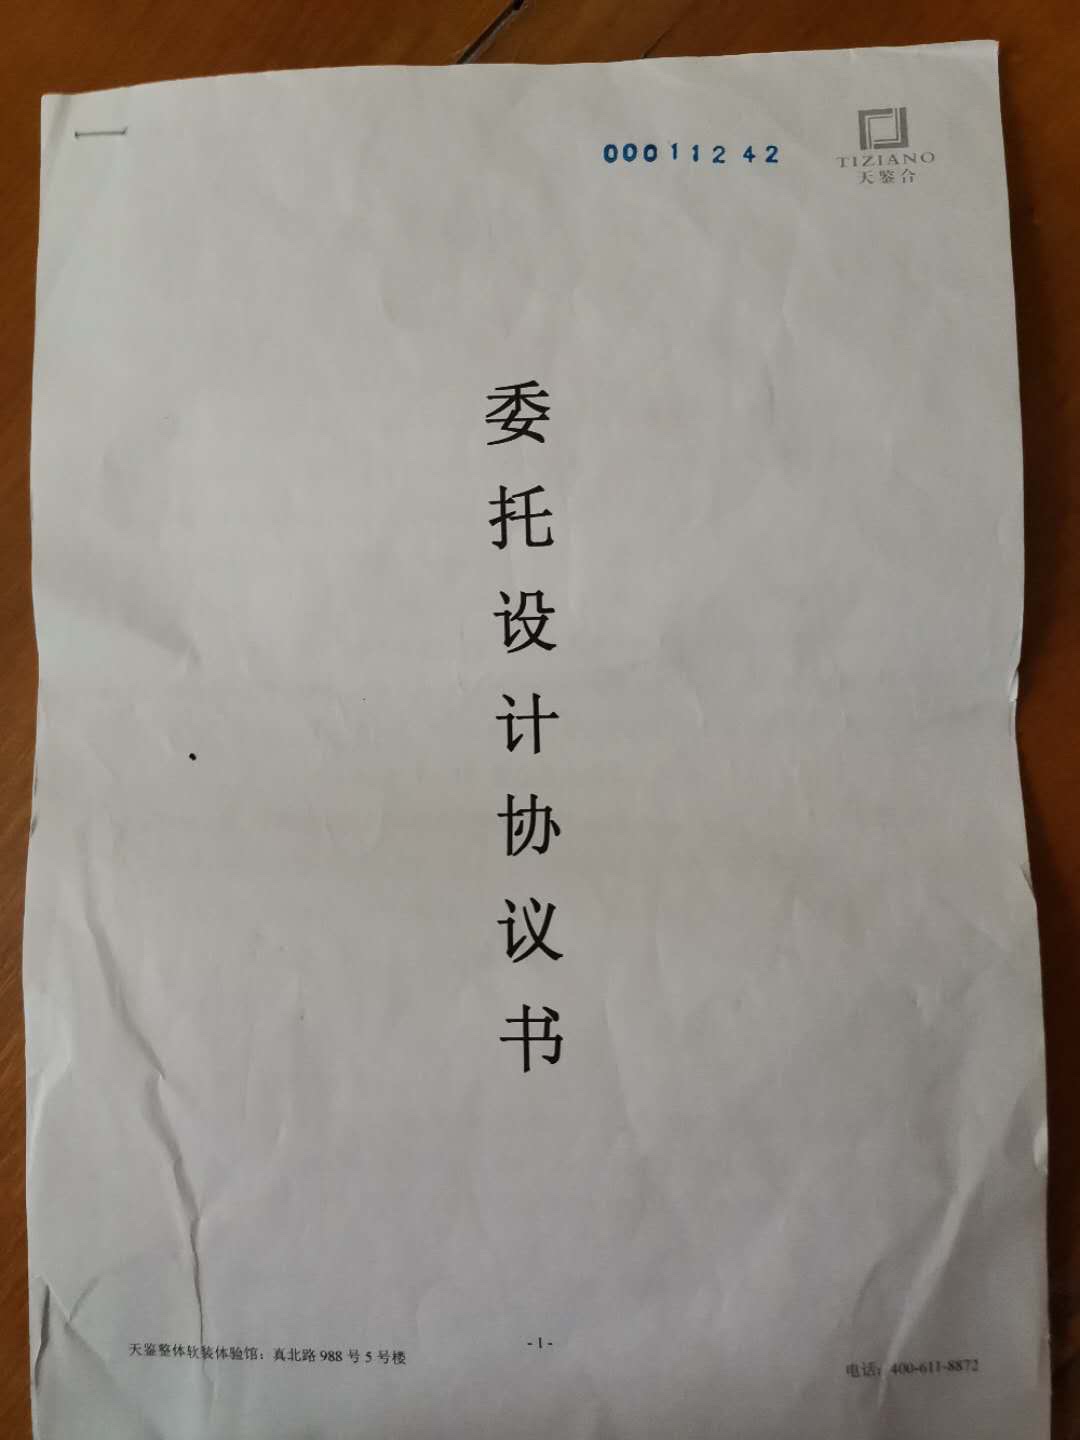 00011242
TIZIANO
天鉴合
委
托
设
计
协
议
书
- 1 -
天鉴整体软装体验馆：真北路 988 号 5 号楼
电话：400-611-8872